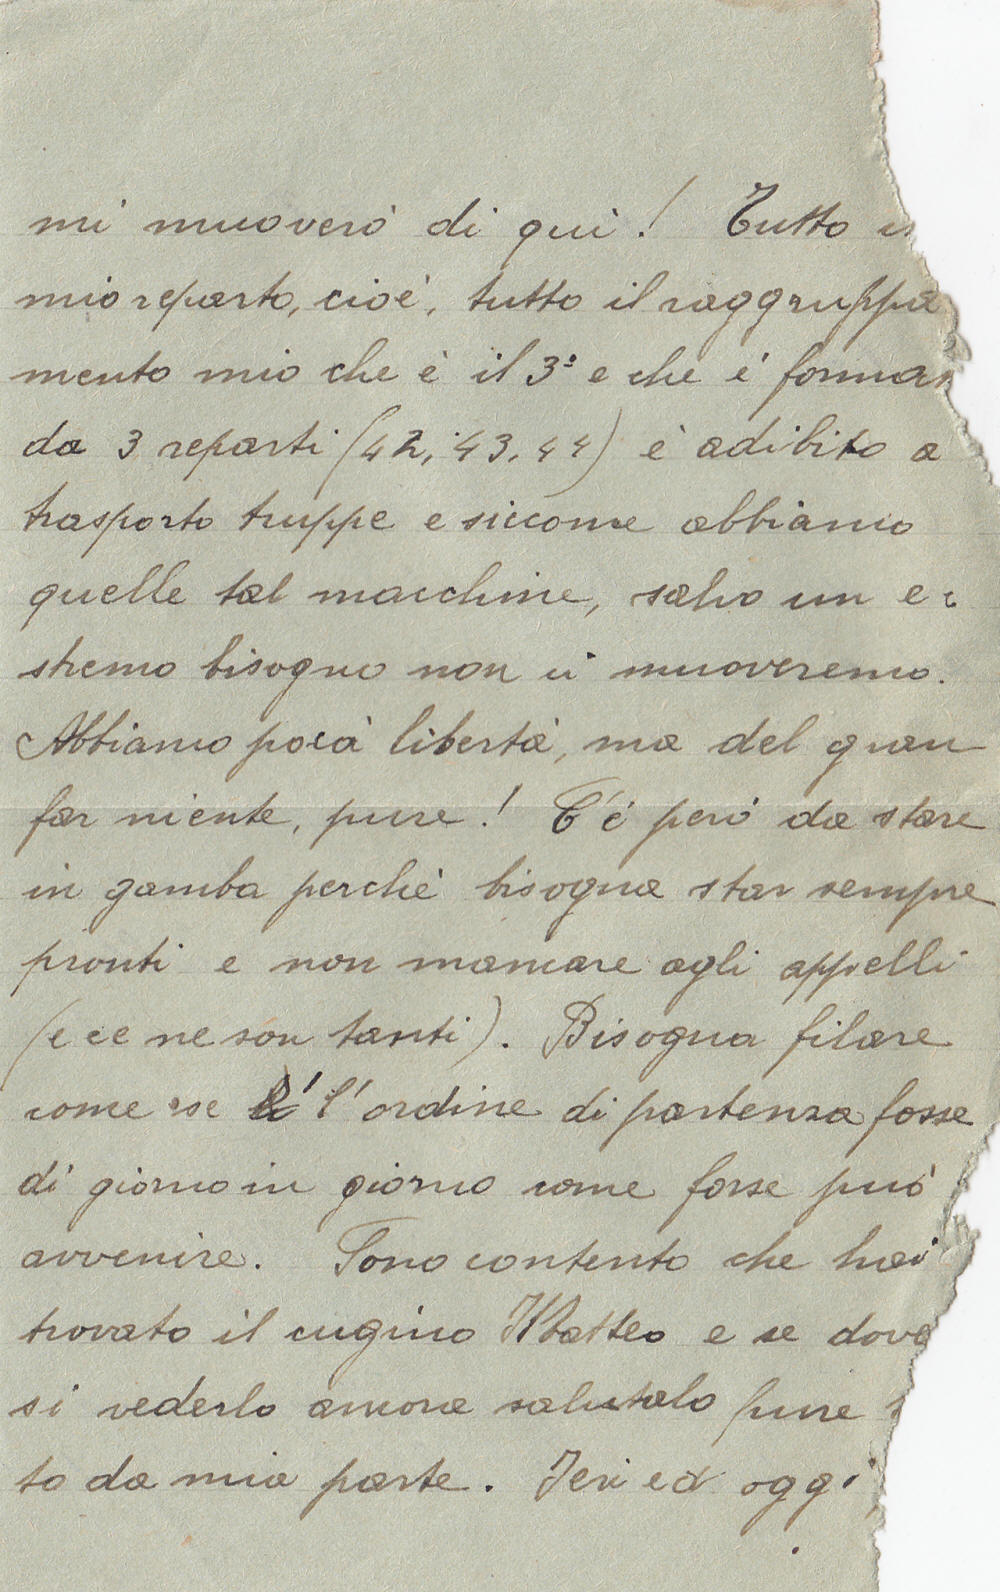 mi muoverò di qui! Tutto
mio reparto, cioè, tutto il raggruppa
mento mio che è il 3° e che è formar
da 3 reparti (42, 43, 44) è adibito a
trasporto truppe e siccome abbiamo
quelle tal macchine, salvo un e
stremo bisogno non ci muoveremo.
Abbiamo poca libertà, ma del gran
far niente, pure! C'è però da stare
in gamba perchè bisogna star sempre
pronti e non mancare agli appelli
(e ce ne son tanti). Bisogna filare
come se l'ordine di partenza fosse
di giorno in giorno come forse può
avvenire. Sono contento che hai
trovato il cugino Matteo e se dove
si vederlo ancora salutalo pure
to da mia parte. Ieri ed oggi